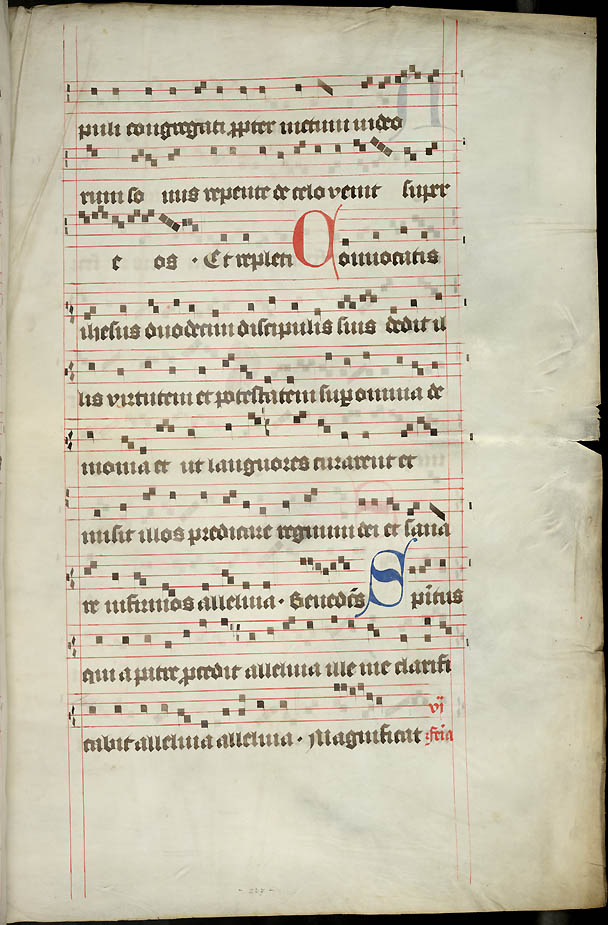 puli congregati ꝓpter metum iudeo
rum so nus repente de celo venit super
e os · Et repleti Conuocatis
ihesus duodecim discipulis suis dedit il
lis virtutem et potestatem suꝑ omnia de
monia et ut languores curarent et
misit illos predicare regnum dei et sana
re infirmos alleluia · Benedc̄s Spiritus
qui a patre ꝓcedit alleluia ille me clarifi
cabit alleluia alleluia · Magnificat vi
feria